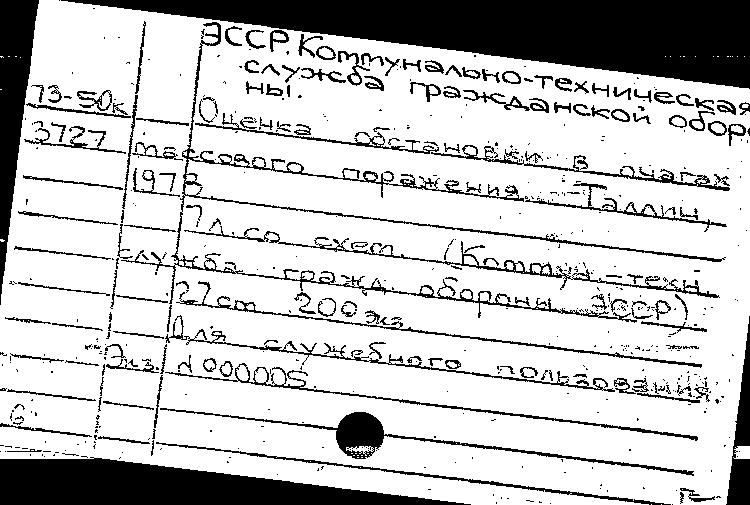 ЭССР. Коммунально-техническая
служба гражданской оборо
ны.
73-50к
3727
Оценка обстановки в очагах
массового поражения. - Таллин,
1973.
7 л. со схем. (Коммун.-техн.
служба гражд. обороны ЭССР).
27 см 200 экз.
Для служебного пользования.
Экз. № 000005.
б